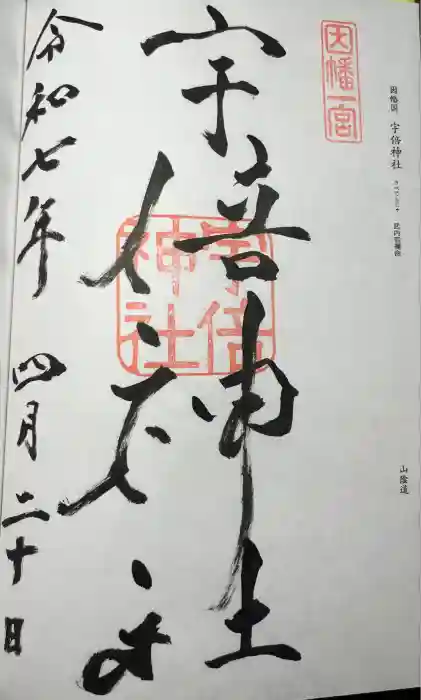 因幡国 宇倍神社
武内宿禰命
山陰道
因幡一宮
宇倍神社
宇倍
神社
令和七年 四月 二十日